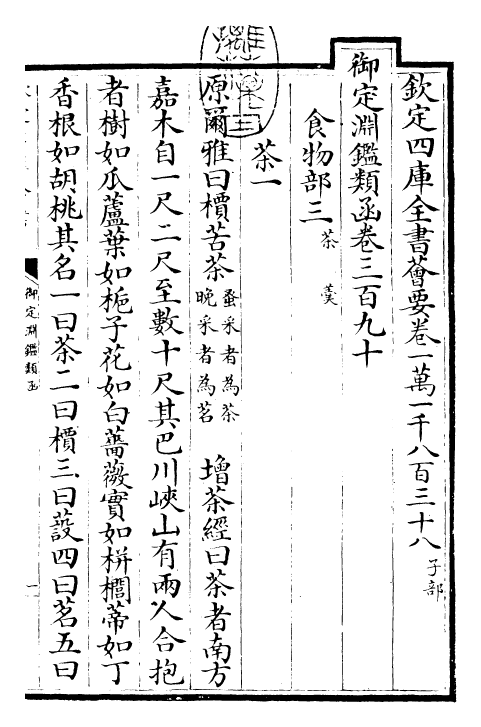 欽定四庫全書薈要卷一萬一千八百三十八 子部
御定淵鑑類函卷三百九十
食物部三 茶 羹
茶一
原爾雅曰檟苦茶 蚤采者為茶
晚采者為茗 增茶經曰茶者南方
嘉木自一尺二尺至數十尺其巴川峽山有兩人合抱
者樹如瓜蘆葉如梔子花如白薔薇實如栟櫚蒂如丁
香根如胡桃其名一曰茶二曰檟三曰蔎四曰茗五曰
御定淵鑑類函
一